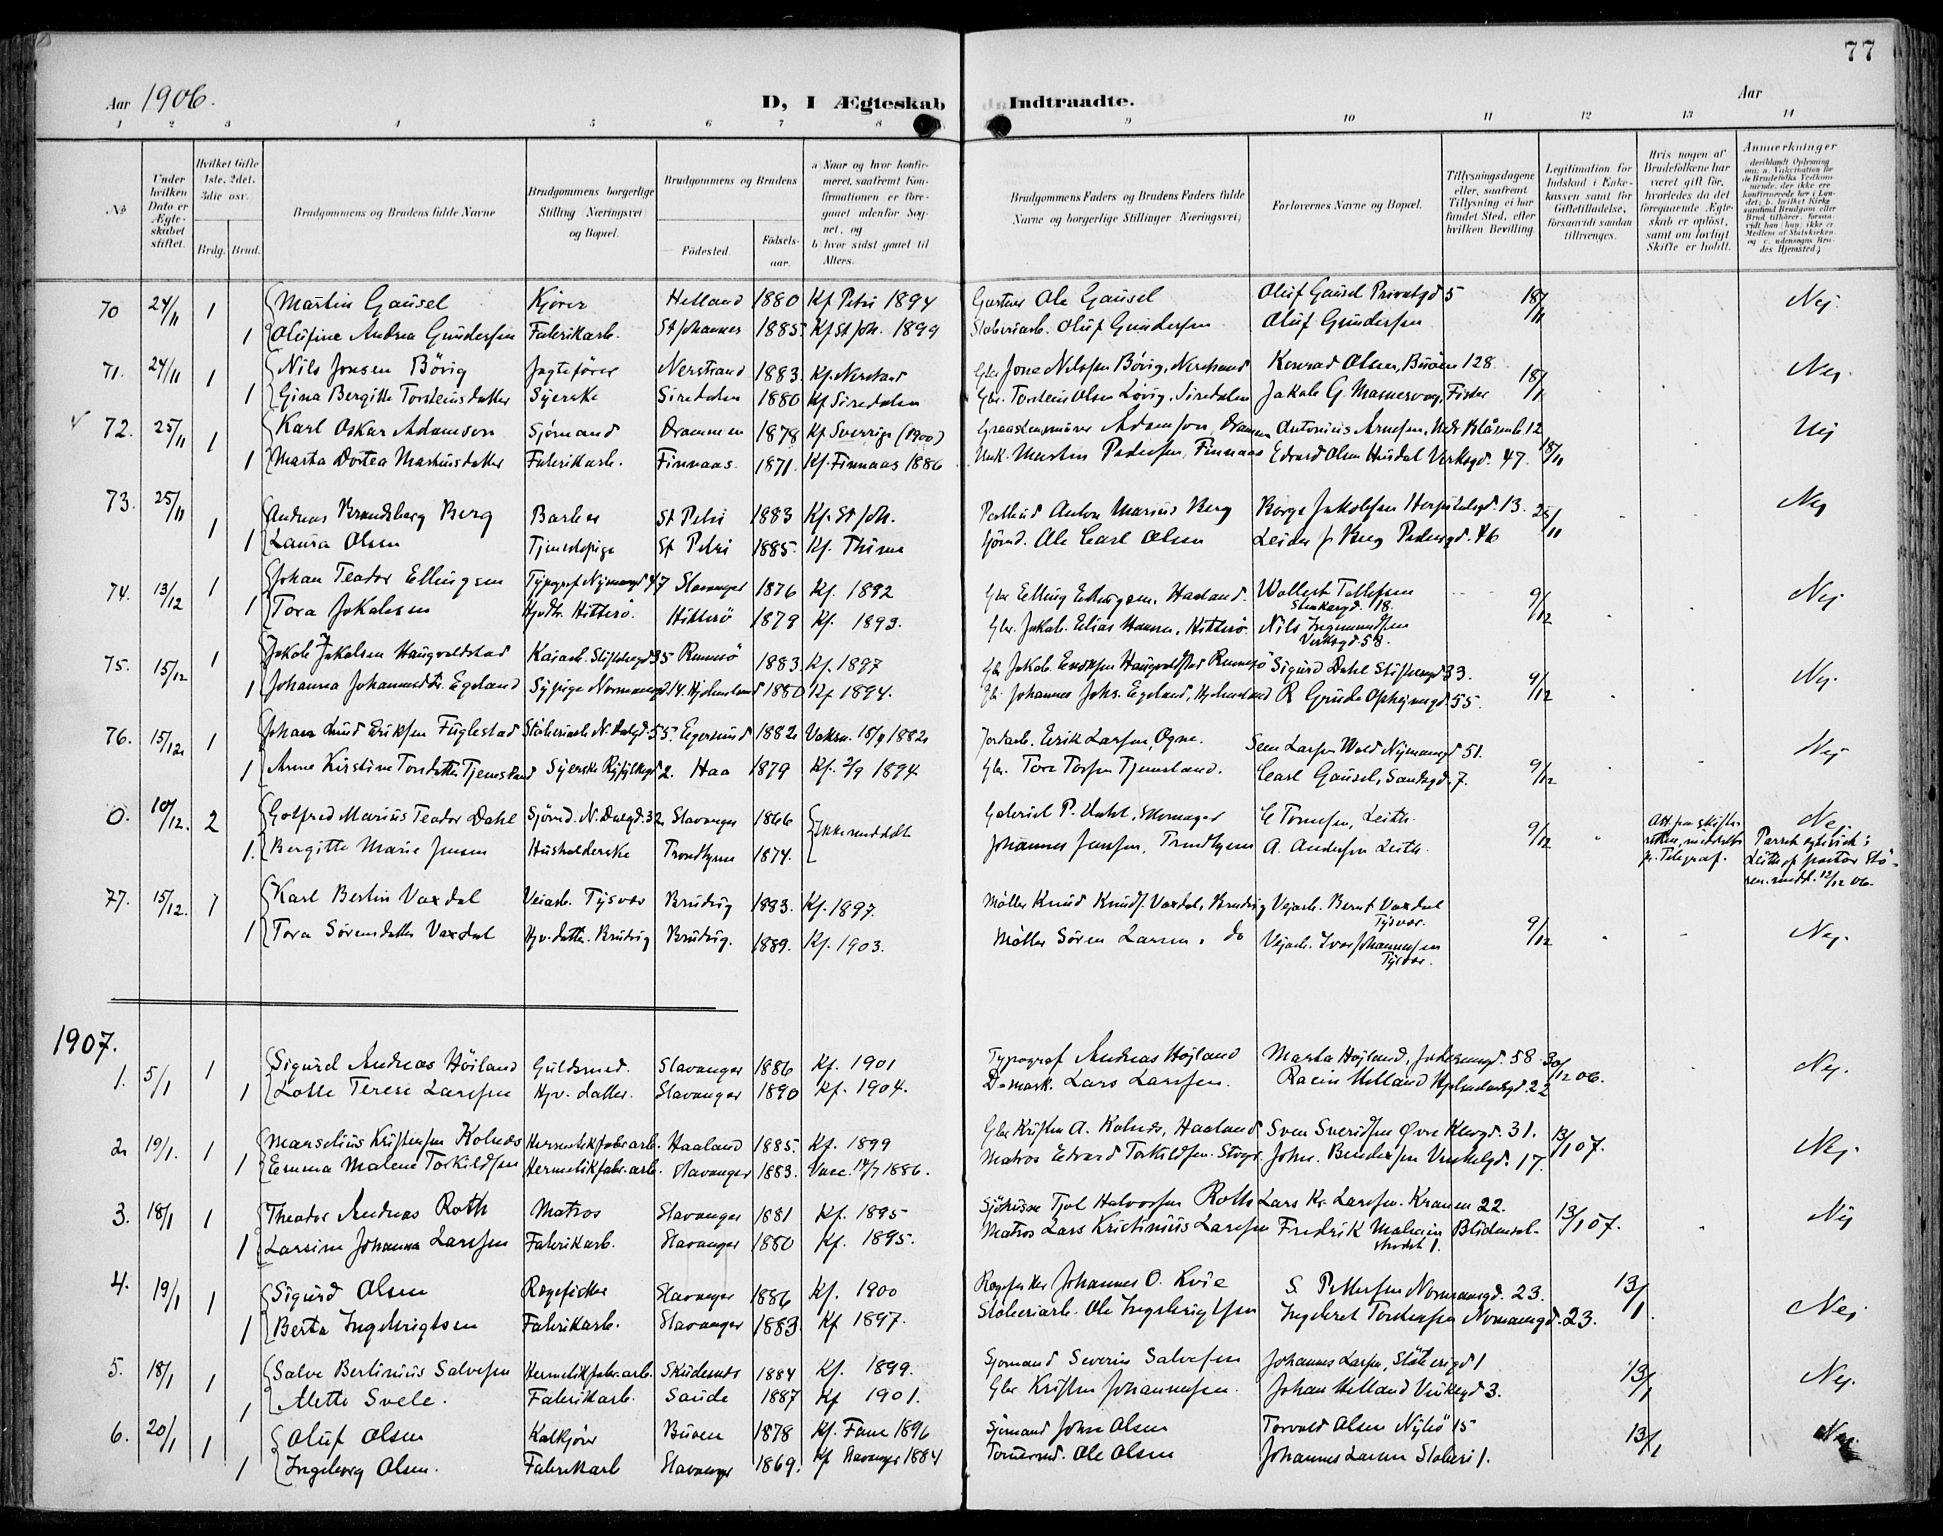 77
Aar 1906. D, I Ægteskab Indtraadte. Aar
1 2 3 4 5 6 7 8 9 10 11 12 13 14
No
Under hvilken Dato er Ægteskabet stiftet.
Hvilket Gifte 1ste, 2det, 3die osv.
Brdg. Brud.
Brudgommens og Brudens fulde Navne
Brudgommens borgerlige Stilling (Næringsvei) og Bopæl.
Brudgommens og Brudens
Fødested. Fødselsaar.
a Naar og hvor konfirmeret, saafremt Konfirmationen er foregaaet udenfor Sognet, og
b hvor sidst gaaet til Alters.
Brudgommens Faders og Brudens Faders fulde Navne og borgerlige Stillinger (Næringsvei)
Forlovernes Navne og Bopæl.
Tillysningsdagene eller, saafremt Tillysning ei har fundet Sted, efter hvilken Bevilling.
Legitimation for Indskud i Enkekassen samt for Giftetilladelse, forsaavidt saadan tiltrænges.
Hvis nogen af Brudefolkene har været gift før, hvorledes da det foregaaende Ægteskab er opløst, samt om lovligt Skifte er holdt.
Anmerkninger
70 24/11 1 Martin Gausel Kjører Hetland 1880 Kf Petri 1894 Gartner Ole Gausel Oluf Gausel Privatgd 5 18/11 Nej
1 Olufine Andrea Gundersen Fabrikarb. St Johannes 1885 Kf St Joh. 1899 Støberiarb. Oluf Gundersen Oluf Gundersen
71. 24/11 1 Nils Jonsen Bövig Jagtefører Nerstrand 1883. Kf. Nerstrand Gbr Jone Nilssen Bövig, Nerstrand Konrad Olsen, Buöen 128 18/11 Nej
1 Gina Bergitte Torsteinsdatter Syerske Siredalen 1880 Kf Siredalen Gbr. Torstein Olsen Lövig, Siredalen Jakob G. Marnesvag, Fister
72. 25/11 1 Karl Oskar Adamson Sjømand Drammen 1878 Kf Sverrige (1900) Adamson, Drammen Antonius Arnesen, Nedr Blåsenb. 12 Nej
1 Marta Dortea Martinsdatter Fabrikarb. Finnaas. 1871. Kf. Finnaas 1886 Martin Pedersen, Finnaas Edvard Olsen Husdal Verksgd. 47. 18/11
73. 25/11 1 Andreas Brandsberg Berg Barber St Petri 1883 Kf. St Joh. Anton Marius Berg Børge Jakobsen Hospitalsgd. 13. 25/11 Nej
1 Laura Olsen Tjenestepige St Petri 1885. Kf. Thime Sjömd. Ole Carl Olsen Berg Pedersgd. 46
74. 13/12 1 Johan Teodor Ellingsen Typograf Nymansgd 47 Stavanger 1876 Kf. 1892 Gbr Elling Ellingsen, Haaland. Wollert Tollefsen 9/12 Nej
Stenkargd. 18.
1 Tora Jakobsen Hjvdtr. Hitterö. Hitterö 1879 Kf. 1893. Gbr. Jakob Elias Hansen, Hitterö. Nils Ingemundsen
Verksgd. 58.
75. 15/12 1 Jakob Jakobsen Haugvaldstad Kaiarb. Stiftelsegd 35 Rennesö 1883 Kf. 1897 Gbr Jakob Endresen Haugvaldstad Rennesö Sigurd Dahl Stiftelsesgd 33. 9/12 Nej.
1 Johanna Johannesdtr. Egeland Sypige Normansgd 14. Hjelmeland 1880 Kf 1894. Gbr. Johannes Johs. Egeland, Hjelmeland R Grude Ophejmsgd. 55.
76. 15/12 1 Johan Lund Eriksen Fuglestad Støberiarb. N. Dalgd. 55. Egersund 1882 Vaksn. 15/9 1882 Jordarb. Erik Larsen, Ogne. Sem Larsen Wold Nymansgd 51. Nej
1 Anne Kirstine Torsdatter Tjemsland Syerske Ryfylkegd 2. Haa 1879 Kf. 2/9 1894 Gbr. Tore Torsen Tjemsland. Carl Gausel, Sandsgd. 7. 9/12
0. 10/12. 2 Gotfred Marius Teodor Dahl Sjömd. N. Dalgd. 32 Stavanger 1866 Ikke meddelt Gabriel P. Dahl, Skomager C Tomesen, Leith. 9/12 Att. fra Skifteretten, meddelt pr. Telegraf. Nej
1. Bergitte Marie Jensen Husholderske Trondhjem 1874. Johannes Jensen, Trondhjem A. Andersen Leith. Parret egteviet i Leith af pastor Stören. medd. 12/12 06.
77. 15/12. 1 Karl Bertin Vaxdal Veiarb. Tysvær Bruvig 1883. Kf. 1897. Møller Knud Knuds. Vaxdal, Bruvig Vejarb. Bernt Vaxdal
Tysvær.
1 Tora Sörensdatter Vaxdal Hjv. datter. Bruvig Bruvig. 1889. Kf. 1903. Møller Sören Larsen. do Vejarb. Ivar Johannesen 9/12 Nej.
Tysvær.
1907.
1. 5/1 1 Sigurd Andreas Höiland Guldsmed. Stavanger 1886 Kf. 1901 Typograf Andreas Højland Marta Højland, 58. 30/12 06. Nej.
1 Lotte Terese Larssen Hjv. datter. Stavanger 1890 Kf. 1904. Lars Larssen. Racin Helland Hjelmelandsgd. 22
2 19/1. 1 Marselius Kristensen Kolnes Hermetikfabr. arb. Haaland 1885. Kf. 1899 Gbr Kristen A. Kolnes, Haaland Sven Sverdsen Øvre Kleivgd. 31. 13/1 07. Nej.
1 Emma Malene Torkildsen Hermetikfabr. arb. Stavanger 1883. Vacc. 14/7 1886. Matros Edvard Torkildsen. Stvgr. Johs. Bendersen Vinkelgd. 17.
3. 18/1 1 Theodor Andreas Roth Matros Stavanger 1881 Kf. 1895 Tjol Halvorsen Roth Lars Kr. Larssen. Kranen 22. 13/1 07. Nej
1 Larsine Johanna Larssen Fabrikarb. Stavanger 1880 Kf. 1895. Matros Lars Kristinius Larssen Fredrik Malmin Blidensol-
stredet 1.
4. 19/1 1 Sigurd Olsen Røgefisker Stavanger 1886 Kf. 1900 Johannes O. Kvie S. Pettersen Normansgd. 23. 13/1. Nej
1 Berta Ingebrigtsen Fabrikarb. Stavanger 1883 Kf 1897. Støberiarb. Ole Ingebrigtsen Ingebret Tordersen Normansgd. 23.
5. 18/1 1 Salve Bertinius Salvesen Hermetikfabr. arb. Skudesnes 1884 Kf. 1899. Sjømand Severin Salvesen Johannes Larsen, Støberigd 1 13/1 Nej.
1 Alette Svele. Fabrikarb. Saude 1887 Kf 1901. Gbr Kristen Johannesen. Johan Helland Vinkelgd 3.
6. 20/1 1 Oluf Olsen Kalkjører Buöen 1878 Kf. Fane 1896 Sjømand John Olsen Torvald Olsen Nybö 15 13/1 Nej.
1 Ingeborg Olsen. Fabrikarb Stavanger 1869. Kf Stavanger 1884 Tømmermd. Ole Olsen Johannes Larsen Støberi 1.